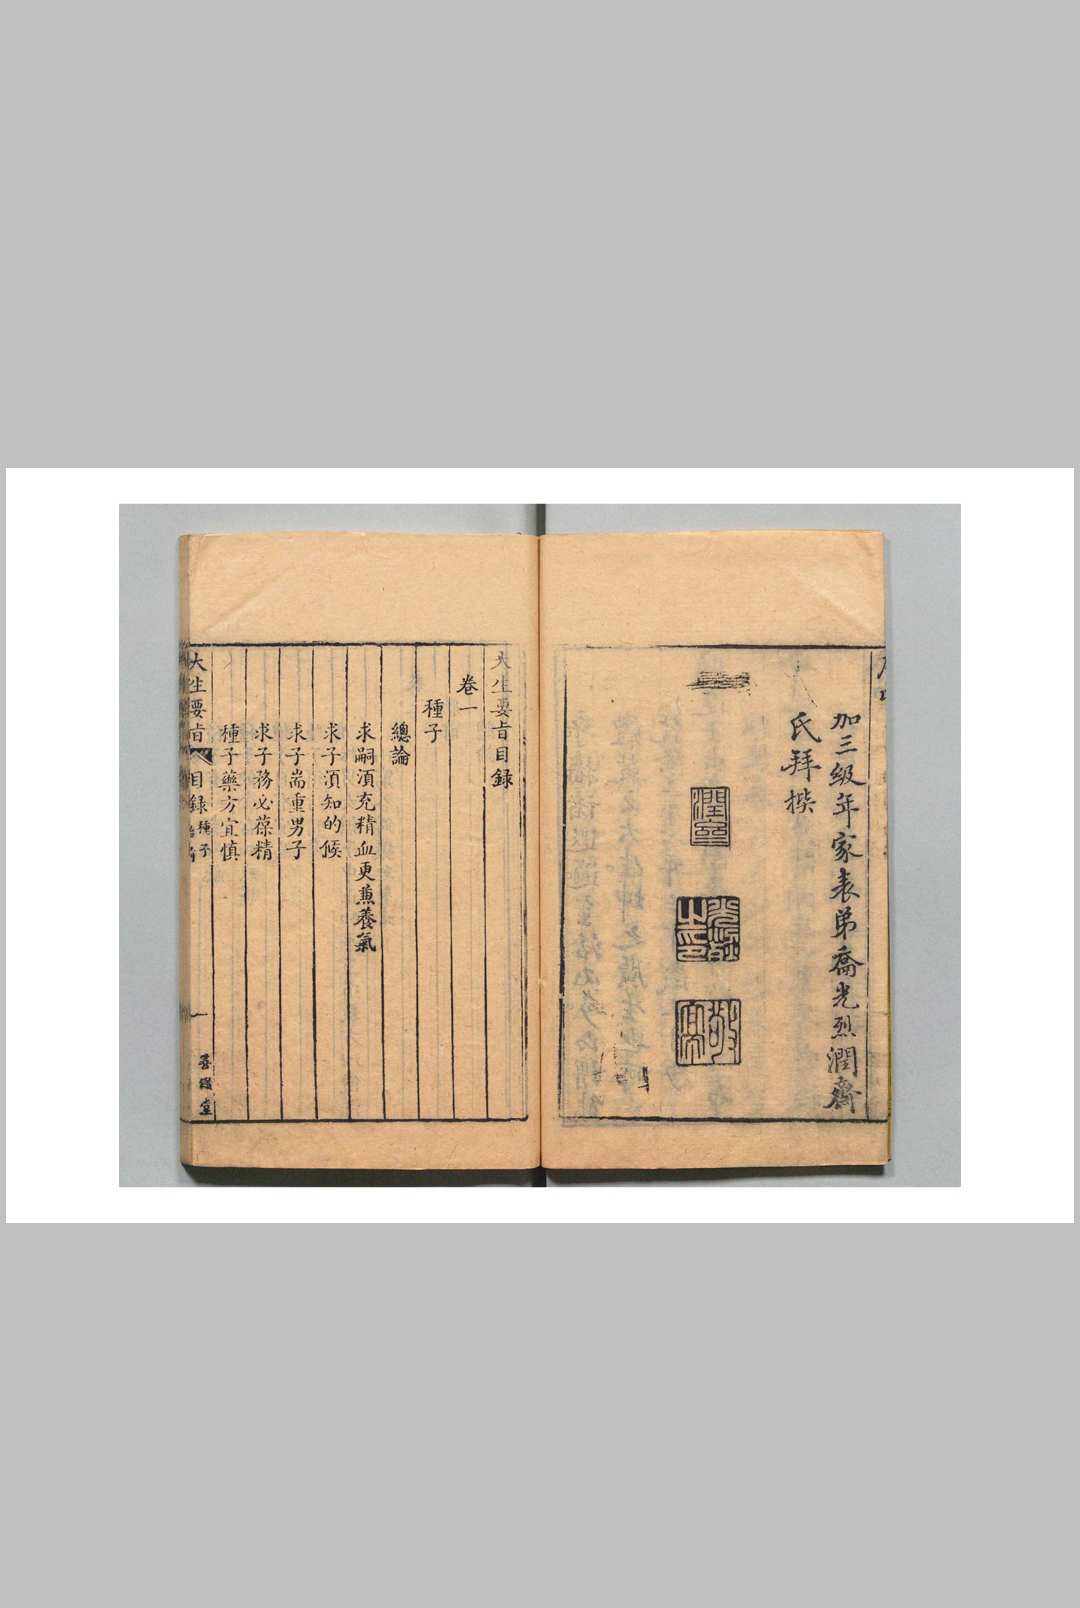 加三級年家表弟喬光烈潤齋
氏拜撰
大生要旨目錄
卷一
種子
總論
求嗣須充精血更兼養氣
求子須知的候
求子耑重男子
求子務必葆精
種子藥方宜慎
大生要旨
目錄
種子